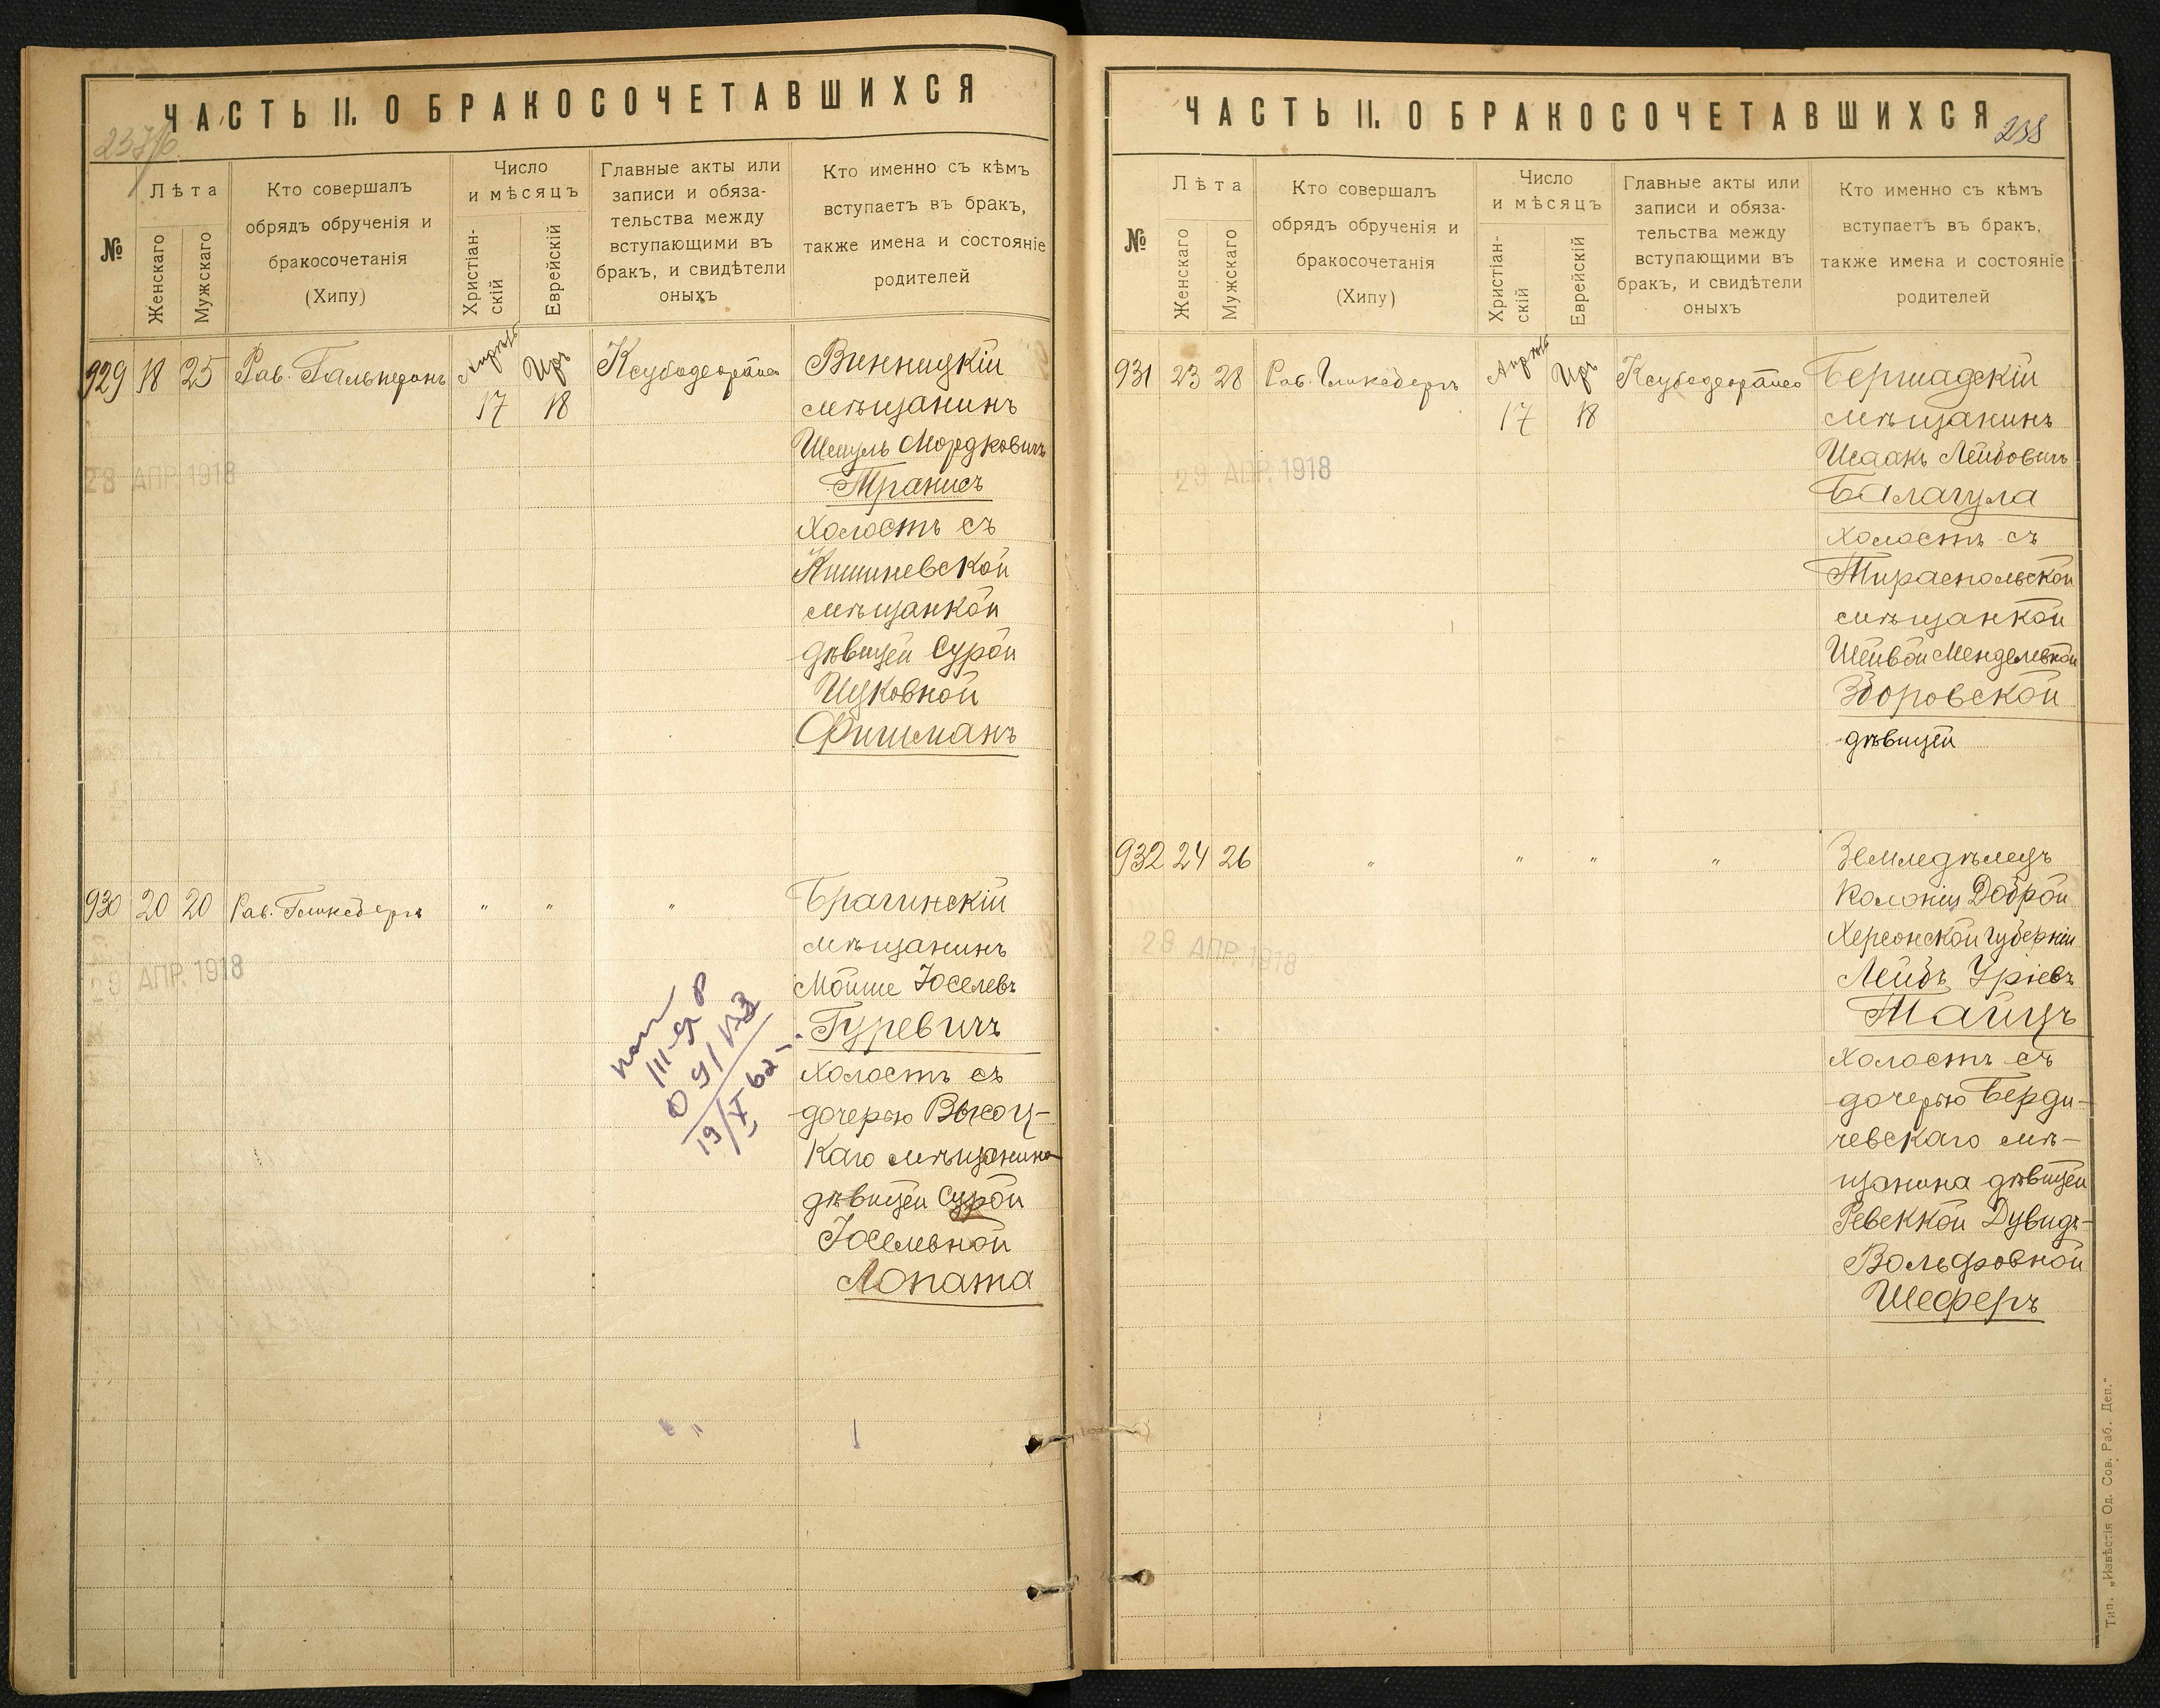 ЧАСТЬ II. О БРАКОСОЧЕТАВШИХСЯ
№
Лѣта
Женскаго
Мужскаго
Кто совершалъ
обрядъ обрученія и
бракосочетанія
(Хипу)
Число
и мѣсяцъ
Христіан-
скій
Еврейскій
Главные акты или
записи и обяза-
тельства между
вступающими въ
бракъ, и свидѣтели
оныхъ
Кто именно съ кѣмъ
вступаетъ въ бракъ,
также имена и состояніе
родителей
929 18 25 Рав. Гальперинъ Апрѣль 17 Иръ 18
Винницкій
мѣщанинъ
Шмуль Мордковичъ
Транисъ
холостъ съ
Кишиневской
мѣщанкой
дѣвицей Сурой
Ицковной
Фишманъ
28 АПР. 1918
930 20 20 Рав. Гликсбергъ " " "
Брагинскій
мѣщанинъ
Мойше Іоселевъ
Гуревичъ
холостъ съ
дочерью Высоц-
каго мѣщанина
дѣвицей Сурой
Іоселевной
Лопата
29 АПР. 1918
19/X 62
ЧАСТЬ II. О БРАКОСОЧЕТАВШИХСЯ
238
№
Лѣта
Женскаго
Мужскаго
Кто совершалъ
обрядъ обрученія и
бракосочетанія
(Хипу)
Число
и мѣсяцъ
Христіан-
скій
Еврейскій
Главные акты или
записи и обяза-
тельства между
вступающими въ
бракъ, и свидѣтели
оныхъ
Кто именно съ кѣмъ
вступаетъ въ бракъ,
также имена и состояніе
родителей
931 23 28 Рав. Гликсбергъ Апрѣль 17 Иръ 18
Бершадскій
мѣщанинъ
Исаакъ Лейбовичъ
Балагула
холостъ съ
Тираспольской
мѣщанкой
Шейвой Менделевной
Зборовской
дѣвицей
29 АПР. 1918
932 24 26 " " " "
Земледѣлецъ
колоніи Доброй
Херсонской губерніи
Лейбъ Уріевъ
Тайцъ
холостъ съ
дочерью Берди-
чевскаго мѣ-
щанина дѣвицей
Ревеккой Дувидъ-
Вольфовной
Шеферъ
29 АПР. 1918
Тип. „Извѣстія Од. Сов. Раб. Деп."